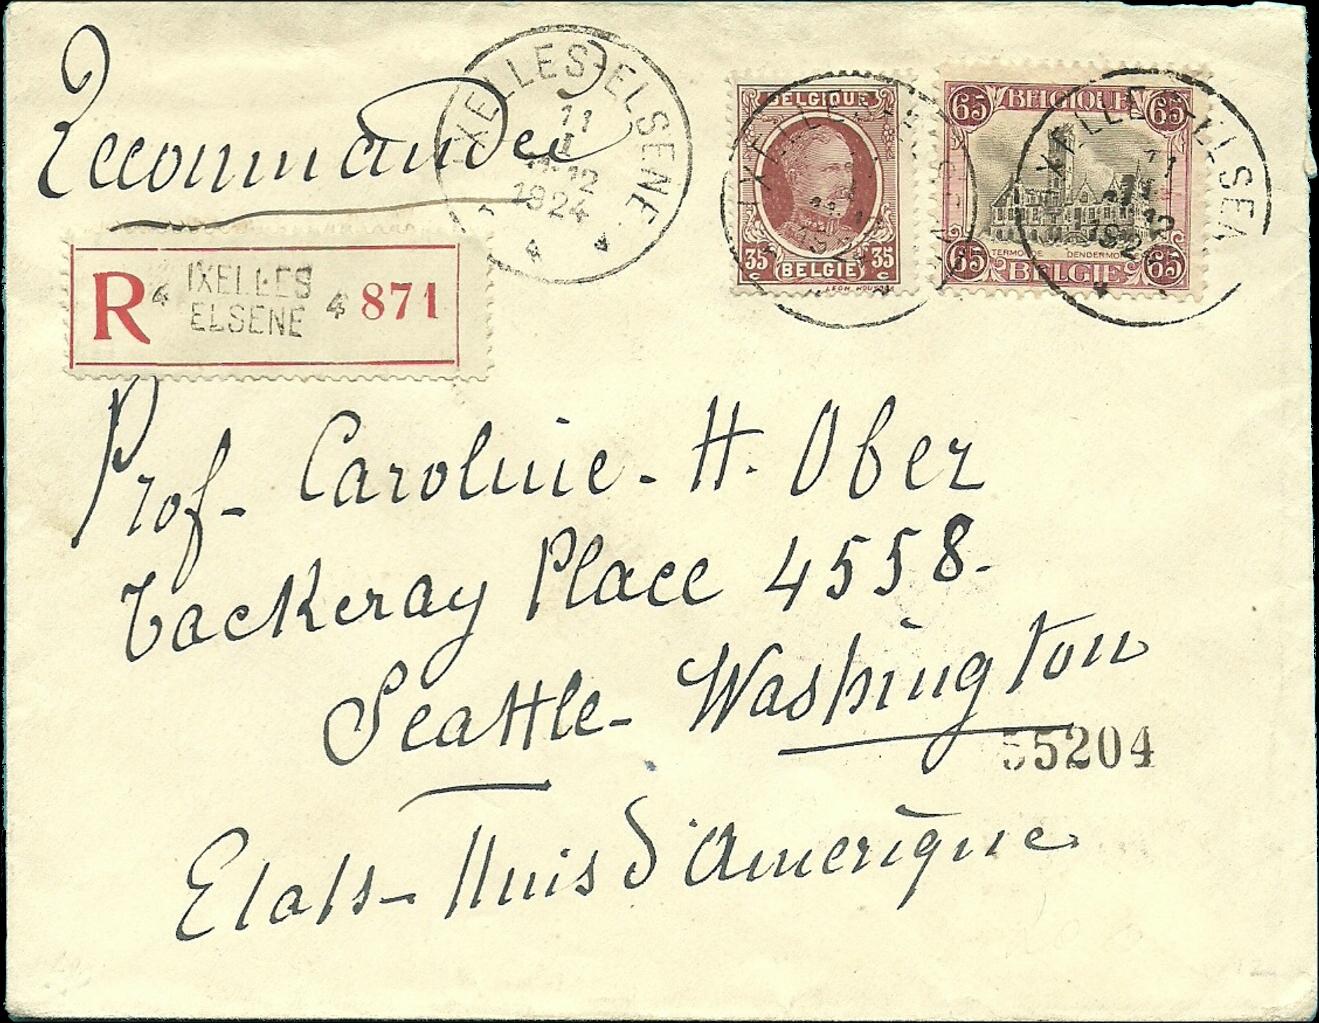 Recommandée
IXELLES-ELSENE
11
I
11-12
1924
R 4 IXELLES
ELSENE 4 871
BELGIQUE
35 BELGIË 35
65 BELGIQUE 65
TERMONDE DENDERMONDE
65 BELGIË 65
Prof- Caroline - H. Ober
Tackeray Place 4558.
Seattle- Washington
55204
Etats-Unis d'Amérique